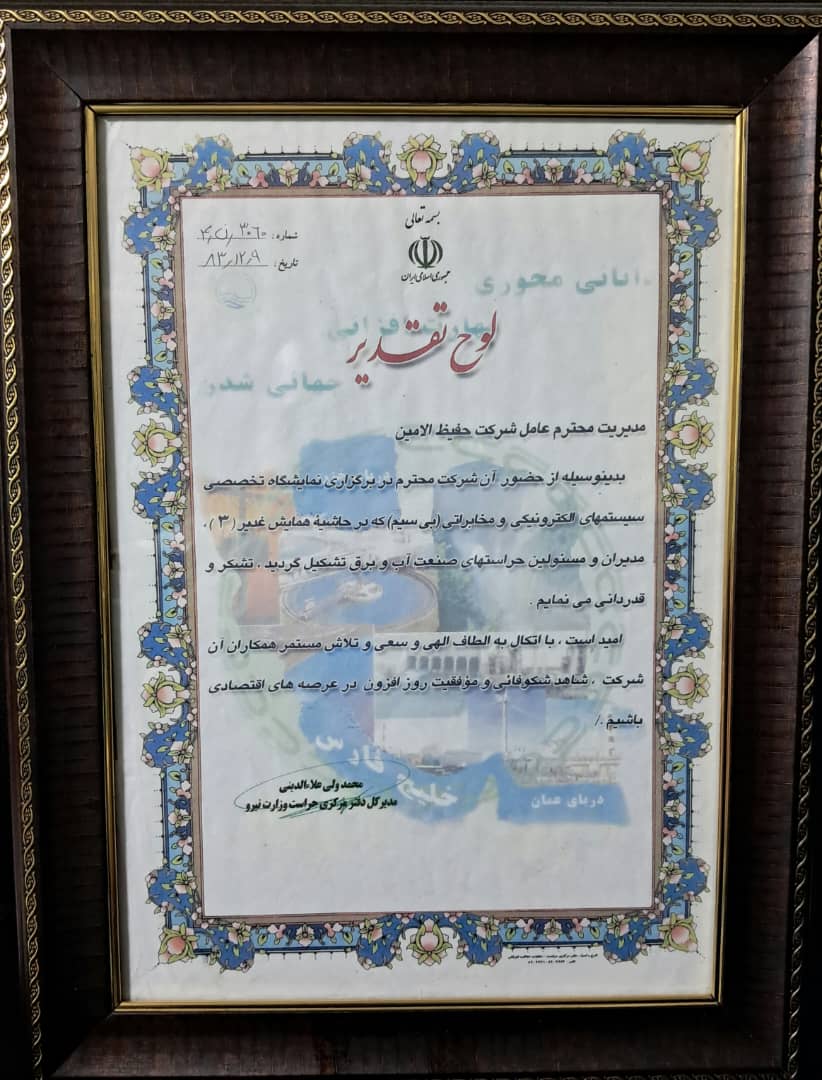 بسمه تعالی
جمهوری اسلامی ایران
شماره: ۳۰۶۰
تاریخ: ۸۳/۱۲/۹
لوح تقدیر
مدیریت محترم عامل شرکت حفیظ الامین
بدینوسیله از حضور آن شرکت محترم در برگزاری نمایشگاه تخصصی
سیستمهای الکترونیکی و مخابراتی (بی سیم) که در حاشیهٔ همایش غدیر (۳)،
مدیران و مسئولین حراستهای صنعت آب و برق تشکیل گردید، تشکر و
قدردانی می نمایم.
امید است، با اتکال به الطاف الهی و سعی و تلاش مستمر همکاران آن
شرکت، شاهد شکوفائی و مؤفقیت روز افزون در عرصه های اقتصادی
باشیم./
محمد ولی علاءالدینی
مدیرکل دفتر مرکزی حراست وزارت نیرو
خلیج فارس
دریای عمان